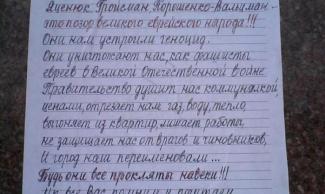 Яценюк, Гройсман, Порошенко-Вальцман -
это позор великого еврейского народа!!!
Они нам устроили геноцид.
Они уничтожают нас, как фашисты
евреев в Великой Отечественной войне.
Правительство душит нас коммуналкой,
ценами, отрезает нам газ, воду, тепло,
выгоняет из квартир, лишает работы,
не защищает нас от врагов и чиновников,
И город наш переименовали...
Будь они все прокляты навеки!!!